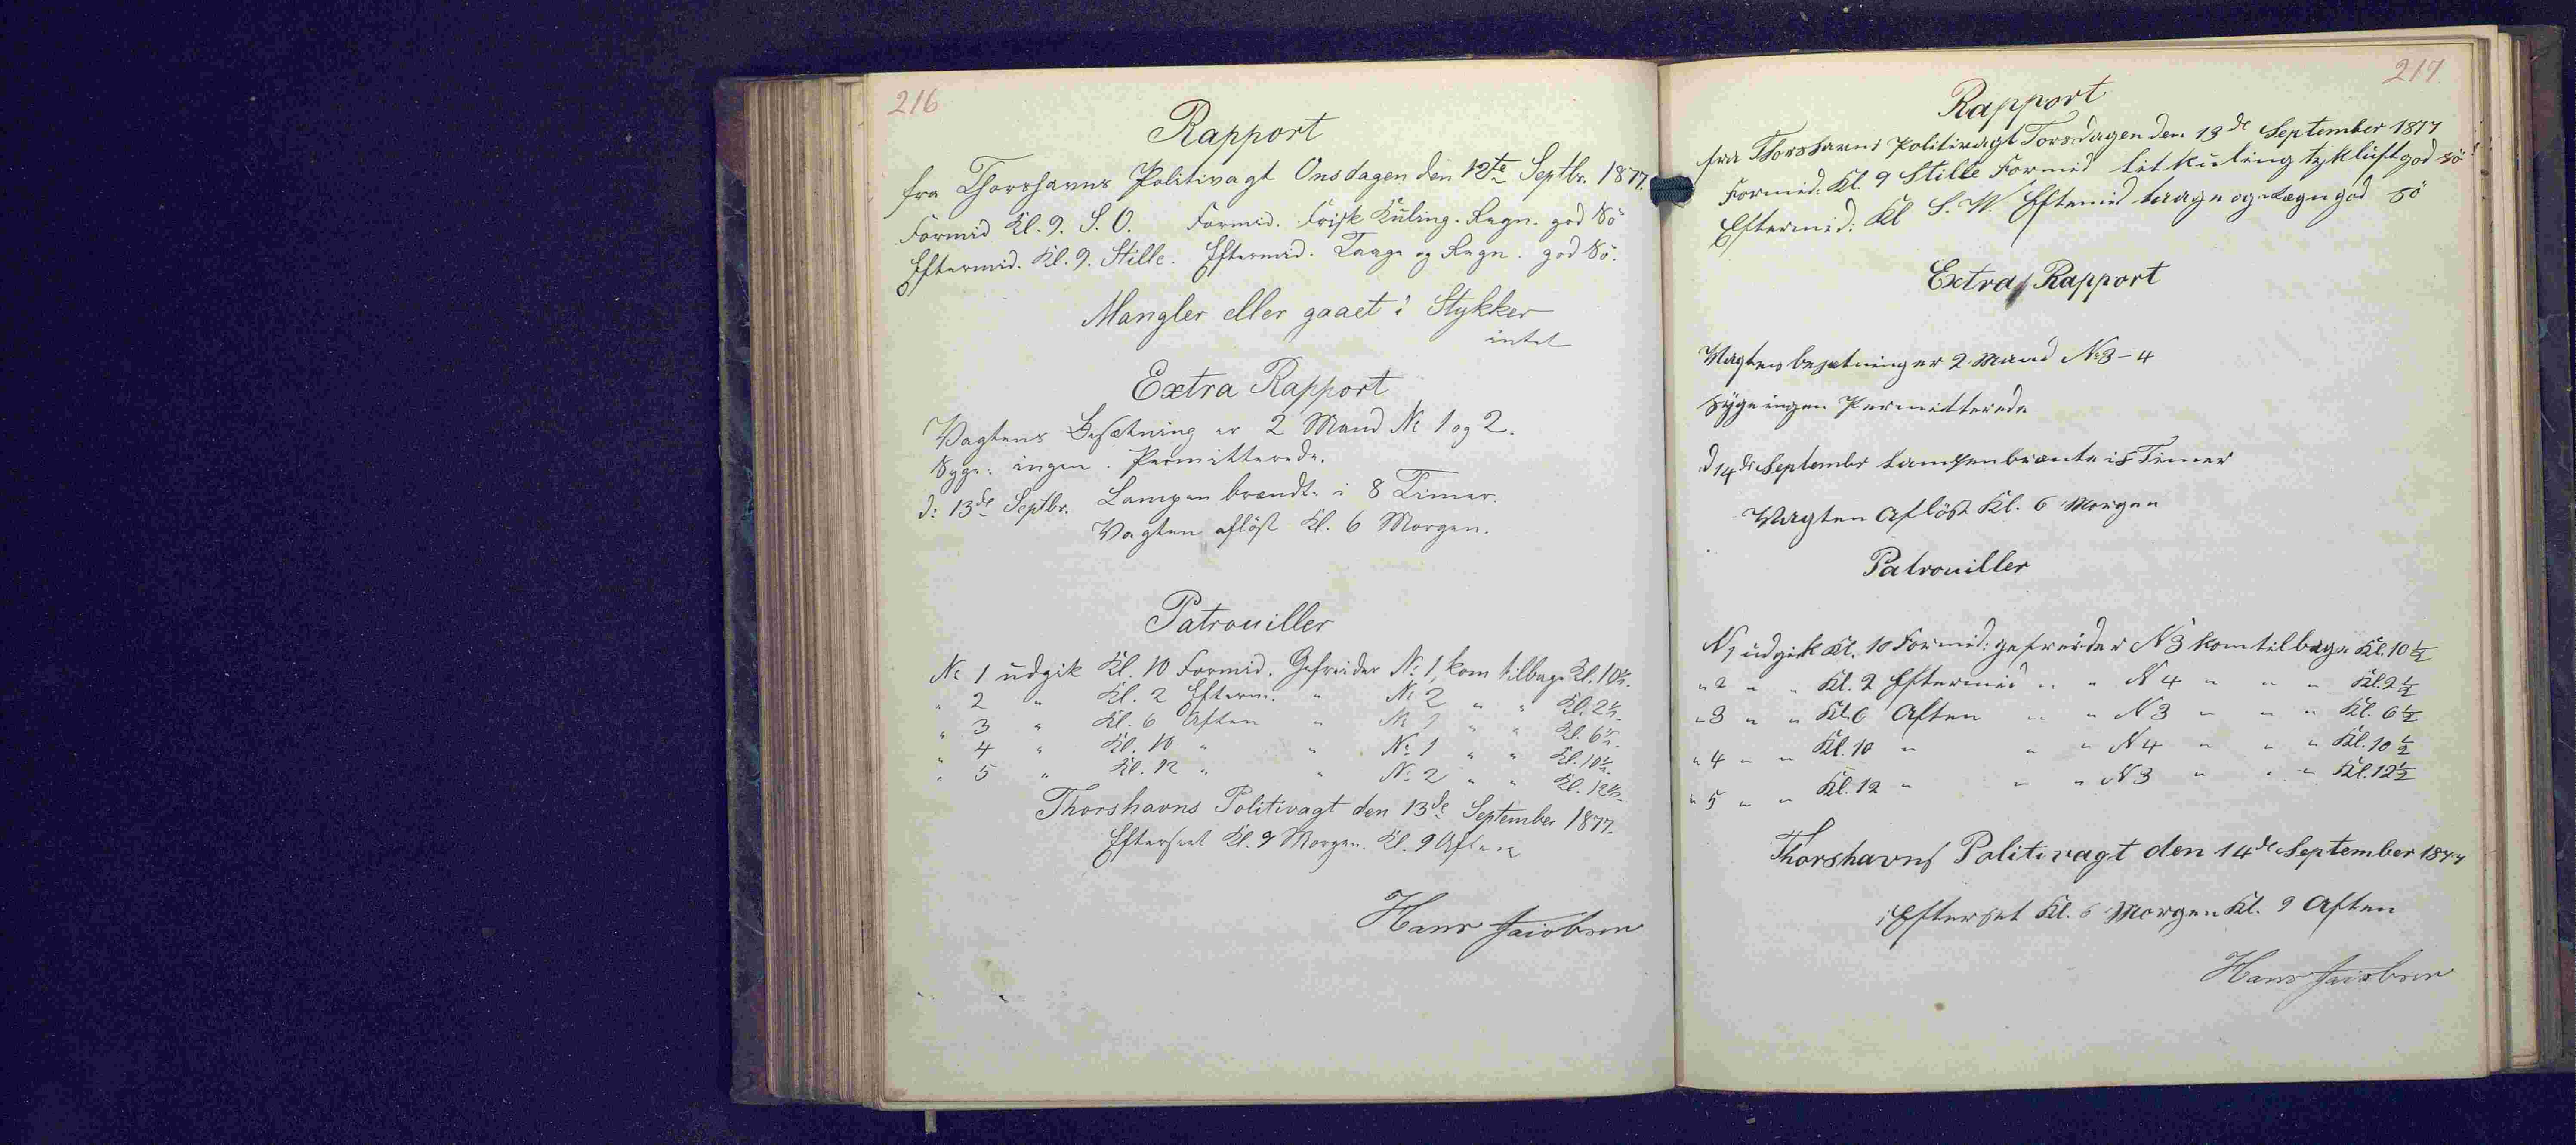 216
Rapport
fra Thorshavns Politivagt Onsdagen den 12te Septbr. 1877.
Formid Kl. 9. S. O. Formid. Frisk Kuling. Regn. god Sö
Eftermid. Kl. 9. Stille. Eftermid. Taage og Regn. god Sö.
Mangler eller gaaet i Stykker
intet
Extra Rapport
Vagtens Besætning er 2 Mand No 1 og 2.
Syge: ingen. Permitterede.
d: 13de Septbr. Lampen brændte i 8 Timer.
Vagten aflöst Kl. 6 Morgen.
Patrouiller
No 1 udgik Kl. 10 Formid. Gefreider No 1, kom tilbage Kl. 10½.
" 2 " Kl. 2 Efterm. " No 2 " " Kl. 2½.
" 3 " Kl. 6 Aften " No 1 " " Kl. 6½.
" 4 " Kl. 10 " " No 1 " " Kl. 10½.
" 5 " Kl. 12 " " No 2 " " Kl. 12½.
Thorshavns Politivagt den 13de September 1877.
Efterseet Kl. 9 Morgen. Kl. 9 Aften
Hans Jacobsen
217
Rapport
fra Thorshavns Politivagt Torsdagen den 13de September 1877
Formid: Kl. 9 Stille Formid let kuling tykluft god sö
Eftermid: Kl S. W. Eftermid taage og Rægn god sö
Extra Rapport
Vagtens besætning er 2 Mand No 3 - 4
Syge ingen Permitterede
d 14de September Lampen brænte i 8 Timer
Vagten Aflöst Kl. 6 Morgen
Patrouiller
N1 udgik Kl. 10 Formid: gefreider N3 kom tilbage Kl. 10½
" 2 " " Kl. 2 Eftermid " " N4 " " " Kl. 2½
" 3 " " Kl. 6 Aften " " N3 " " " Kl. 6½
" 4 " " Kl. 10 " " " N4 " " " Kl. 10½
" 5 " " Kl. 12 " " " N3 " " " Kl. 12½
Thorshavns Politivagt den 14de September 1877
Efterset Kl. 6 Morgen Kl. 9 Aften
Hans Jacobsen